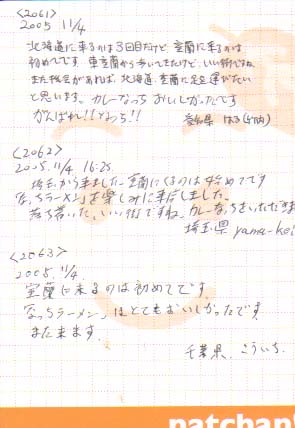 <2061>
2005 11/4
北海道に来るのは3回目だけど、室蘭に来るのは
初めてです 東室蘭から歩いてきたけど、いい街ですね。
また機会があれば、北海道・室蘭に足を運びたい
と思います。カレーなっち おいしかったです
がんばれ!!なっち!!
愛知県 はる
<2062>
2005.11/4 16:25
埼玉から来ました―室蘭にくるのは始めてです
「なっちラーメン」を楽しみに来店しました。
落ち着いた、いい街ですね。カレーなっちをいただきま
埼玉県 yama-kei
<2063>
2005. 11/4.
室蘭に来るのは初めてです。
「なっちラーメン」はとてもおいしかったです。
また来ます。
千葉県. こういち.
patchan